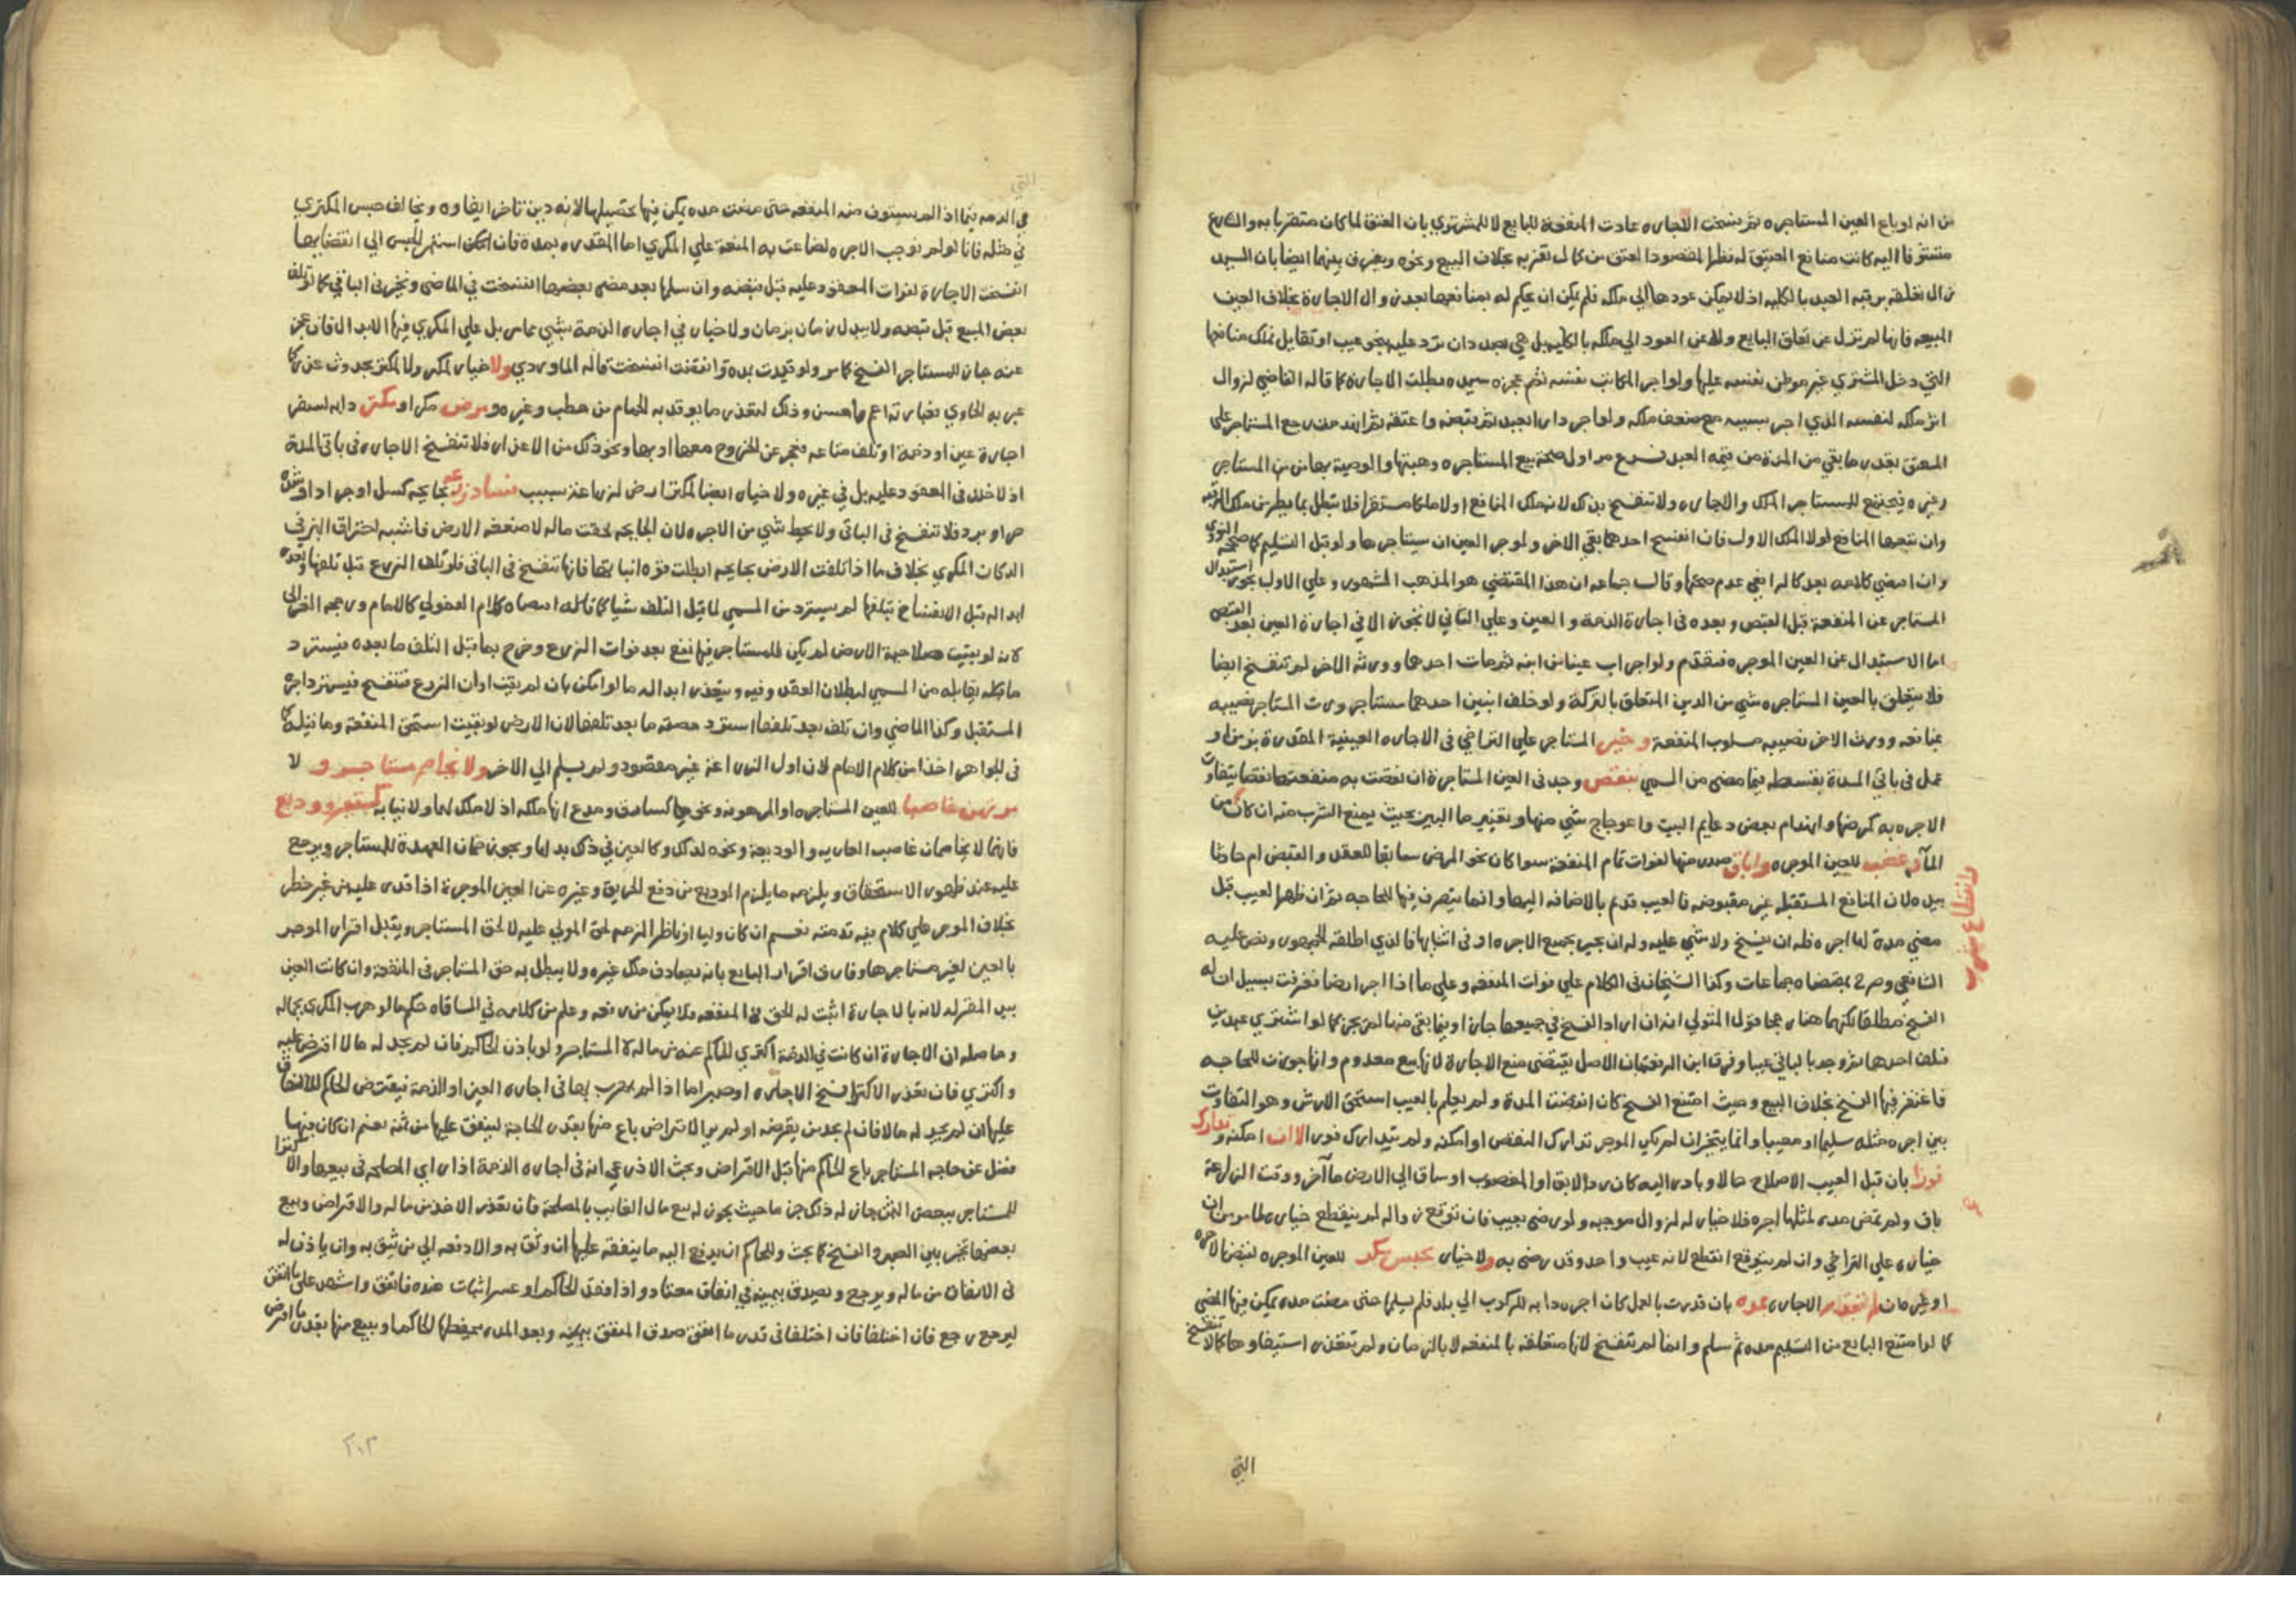 من انه لو باع العين المستاجره ثم فسخت الاجاره عادت المنفعة للبايع لا للمشتري بان العتق لما كان متقربا به والشارع
متشوفا اليه كانت منافع العتيق له نظرا لمقصود العتق من كمال تقربه بخلاف البيع ونحوه ويفرق بينهما ايضا بان السيد
زال تعلقه برقبة العبد بالكليه اذ لا يمكن عودها الي ملكه فلم يكن ان يحكم له بمنافعها بعد زوال الاجارة بخلاف العين
المبيعه فانها لم تزل عن تعلق البايع ولا عن العود الي ملكه بالكليه بل هي بصدد ان ترد عليه بنحو عيب او تقايل فملك منافعها
التي دخل المشتري غير موطن نفسه عليها ولو اجر المكاتب نفسه ثم عجزه سيده بطلت الاجارة كما قاله القاضي لزوال
اثر ملكه لنفسه الذي اجر بسببه مع ضعف ملكه ولو اجر دارا لعبد ثم قبضه واعتقه ثم انهدمت رجع المستاجر على
المعتق بقدر ما بقي من المدة من قيمة العبد فرع مر اول صحة بيع المستاجره وهبتها والوصية بها من المستاجر
وغيره فيجتمع للمستاجر الملك والاجاره ولا تنفسخ بذلك لانه ملك المنافع اولا ملكا مستقرا فلا تبطل بما يطرمن ملك الرقبه
وان تتبعها المنافع لولا الملك الاول فان انفسخ احدهما بقي الاخر ولموجر العين ان يستاجرها ولو قبل التسليم كما صححه النووي
وان اقتضي كلامه بعد كالرافعي عدم صحتها وقال جماعه ان هذا المقتضي هو المذهب المشهور وعلي الاول يجوز استبدال
المستاجر عن المنفعة قبل القبض وبعده في اجارة الذمة والعين وعلي الثاني لا يجوز الا في اجارة العين بعد القبض
اما الاستبدال عن العين الموجره فتقدم ولو اجر اب عينا من ابنه ثم مات احدهما وورثه الاخر لم تنفسخ ايضا
فلا يتعلق بالعين المستاجره شي من الدين المتعلق بالتركة ولو خلف ابنين احدهما مستاجر ورث المستاجر نصيبه
بمنافعه وورث الاخر نصيبه مسلوب المنفعة وخير المستاجر علي التراخي في الاجاره العينية المقدرة بزمن او
عمل في باقي المدة بقسطه فيما مضي من المسمي بنقص وجد في العين المستاجرة ان نقصت به منفعتها نقصا يتفاوت
الاجره به كمرضها وانهدام بعض دعايم البيت واعوجاج شي منها وتغيير ما البير بحيث يمنع الشرب منه ان كان من
المآرب وغصب للعين الموجره واباق صدر منها لفوات تمام المنفعة سوا كان نحو المرض سابقا للعقد والقبض ام حادثا
وانقطاع شرب
بيده لان المنافع المستقبله غير مقبوضه فالعيب قديم بالاضافه اليها وانما يتصرف فيها للحاجه ثم ان ظهر العيب قبل
مضي مدة لها اجره فله ان يفسخ ولا شي عليه وله ان يجيز بجميع الاجره او في اثنايها فالذي اطلقه الجمهور ونص عليه
الشافعي وصرح بمقتضاه جماعات وكذا الشيخان في الكلام علي فوات المنفعه وعلي ما اذا اجر ارضا فغرقت بسيل ان له
الفسخ مطلقا لكنهما هنا رجحا قول المتولي انه ان اراد الفسخ في جميعها جاز او فيما بقي منها لم يجز كما لو اشتري عبدين
فتلف احدهما ثم وجد بالباقي عيبا وفرق ابن الرفعة بان الاصل يقتضي منع الاجارة لانها بيع معدوم وانما جوزت للحاجه
فاغتفر فيها الفسخ بخلاف البيع وحيث امتنع الفسخ كان انقضت المدة ولم يعلم بالعيب استحق الارش وهو التفاوت
بين اجره مثله سليما ومعيبا وانما يتخير ان لم يكن الموجر تدارك النقص او امكنه ولم يتدارك فورا الا ان امكنه وتدارك
فورا بان قبل العيب الاصلاح حالا وبادر اليه كان رد الابق او المغصوب او ساق الي الارض مآ اخر ووقت الزراعة
باق ولم تمض مدة لمثلها اجره فلا خيار له لزوال موجبه ولو رضي بعيب فان توقع زواله لم ينقطع خياره لما مر من ان
خياره علي التراخي وان لم يتوقع انقطع لانه عيب واحد وقد رضي به ولا خيار بحبس مكر للعين الموجره لقبض الاجره
او غيره مان لم تقدر الاجاره بمده بان قدرت بالعمل كان اجر دابه للركوب الي بلد فلم يسلمها حتى مضت مده يمكن فيها المضي
كما لو امتنع البايع من التسليم مده ثم سلم وانما لم تنفسخ لانها متعلقه بالمنفعه لا بالزمان ولم يتعذر استيفاوها كما لا تنفسخ
التي
في الذمه فيما اذا لم يستوف منه المنفعه حتى مضت مده يمكن فيها تحصيلها لانه دين تاخر ايفاوه ويخالف حبس المكتري
في مثله فانا لو لم نوجب الاجره لضاعت به المنفعة علي المكري اما المقدره بمدة فان امكن استمر الحبس الي انقضايها
انفسخت الاجارة لفوات المعقود عليه قبل قبضه وان سلمها بعد مضي بعضها انفسخت في الماضي وتخير في الباقي كما لو تلف
بعض المبيع قبل قبضه ولا يبدل زمان بزمان ولا خيار في اجاره الذمة بشي مما مر بل علي المكري فيها الابدال فان عجز
عنه جاز للمستاجر الفسخ كما مر ولو قيدت بمدة وانقضت انفسخت قاله الماوردي ولا خيار لمكر ولا لمكتر بحدوث عذر كما
عبر به الحاوي فعبارته اعم واحسن وذلك لتعذر ما يوقد به الحمام من حطب وغيره ومرض مكر او مكتر دابه لسفر
اجارة عين او ذمة او تلف متاعه فعجز عن الخروج معها او بها ونحو ذلك من الاعذار فلا تنفسخ الاجاره في باقي المدة
اذ لا خلل في المعقود عليه بل في غيره ولا خيار ايضا لمكتر ارض لزراعة بسبب فساد زرعه بجايحه كسيل او جراد او شدة
حر او برد فلا تنفسخ في الباقي ولا يحط شي من الاجره لان الجايحه لحقت ماله لا منفعه الارض فاشبه احتراق البز في
الدكان المكري بخلاف ما اذا تلفت الارض بجايحه ابطلت قوة انباتها فانها تنفسخ في الباقي فلو تلف الزرع قبل تلفها وتعذر
ابداله قبل الانفساخ بتلفها لم يسترد من المسمي لما قبل التلف شيا كما قاله
لانه لو بقيت صلاحية الارض لم يكن للمستاجر فيها نفع بعد فوات الزرع وخرج بما قبل التلف ما بعده فيسترد
ما يقابله من المسمي لبطلان العقد وفيه وبتعذر ابداله ما لو امكن بان لم يفت اوان الزرع فتنفسخ فيسترد اجرة
المستقبل وكذا الماضي وان تلف بعد تلفها استرد حصته ما بعد تلفها لان الارض لو بقيت استحق المنفعة وما قيل كما
في الجواهر اخذا من كلام الامام لان اول الزراعة غير مقصود ولم يسلم الي الاخر ولا يخاصم مستاجر و لا
مرتهن غاصبا للعين المستاجره او المرهونه ونحوها كسارق ومدع انها ملكه اذ لا ملك لهما ولا نيابه كمستعير ووديع
فانهما لا يخاصمان غاصب العاريه والوديعة ونحوه لذلك وكالعين في ذلك بدلها ويجوز ضمان العهدة للمستاجر ويرجع
عليه عند ظهور الاستحقاق ويلزمه ما يلزم الوديع من دفع الحريق وغيره عن العين الموجرة اذا قدر عليه من غير خطر
بخلاف الموجر علي كلام فيه قدمته نعم ان كان وليا او ناظرا لزمه لحق المولي عليه لا لحق المستاجر ويقبل اقرار الموجر
بالعين لغير مستاجرها وفارق اقرار البايع بانه يصادف ملك غيره ولا يبطل به حق المستاجر في المنفعة وان كانت العين
بيد المقر له لانه بالاجارة اثبت له الحق في المنفعه فلا يمكن من رفعه وعلم من كلامه في المساقاه حكم ما لو هرب المكري بجماله
وحاصله ان الاجارة ان كانت في الذمة اكتري الحاكم عنه من ماله لا المستاجر ولو باذن الحاكم فان لم يجد له مالا اقترض عليه
واكتري فان تعذر الاكترا فسخ الاجاره او صبر اما اذا لم يهرب بها في اجاره العين او الذمة فيقترض الحاكم للانفاق
عليها ان لم يجد له مالا فان لم يجد من يقرضه او لم ير الاقتراض باع منها بقدر الحاجة لينفق عليها من ثمنه نعم ان كان فيها
فضل عن حاجه المستاجر باع الحاكم منها قبل الاقتراض وبحث الاذرعي انه في اجاره الذمة اذا راي المصلحه في بيعها والاكترا
للمستاجر ببعض الثمن جاز له ذلك جزما حيث يجوز له بيع مال الغايب بالمصلحة فان تعذر الاخذ من ماله والاقتراض وبيع
بعضها تخير بين الصبر والفسخ كما بحث وللحاكم ان يدفع اليه ما ينفقه عليها ان وثق به والا دفعه الي من يثق به وان ياذن له
في الانفاق من ماله ويرجع ويصدق بيمينه في انفاق معتاد واذا فقد الحاكم او عسر اثبات عنده فانفق واشهد على ما انفق
ليرجع رجع فان اختلفا في قدر ما انفق صدق المنفق بيمينه وبعد المده يحفظها الحاكم او يبيع منها بقدر ما اقترض
٢٠٣